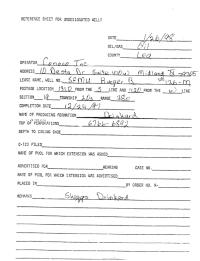 REFERENCE SHEET FOR UNDESIGNATED WELLS
DATE 1/26/98
OIL/GAS Oil
COUNTY Lea
OPERATOR Conoco Inc
ADDRESS 10 Desta Dr Suite Midland TX
LEASE NAME, WELL NO. SEMU Burger B
FOOTAGE LOCATION FROM THE S LINE AND FROM THE W LINE
SECTION TOWNSHIP RANGE
COMPLETION DATE 12/26/97
NAME OF PRODUCING FORMATION Drinkard
TOP OF PERFORATIONS
DEPTH TO CASING SHOE
C-123 FILED
NAME OF POOL FOR WHICH EXTENSION WAS ASKED
ADVERTISED FOR HEARING CASE NO.
NAME OF POOL FOR WHICH EXTENSION WAS ADVERTISED
PLACED IN BY ORDER NO. R-
REMARKS Skaggs Drinkard